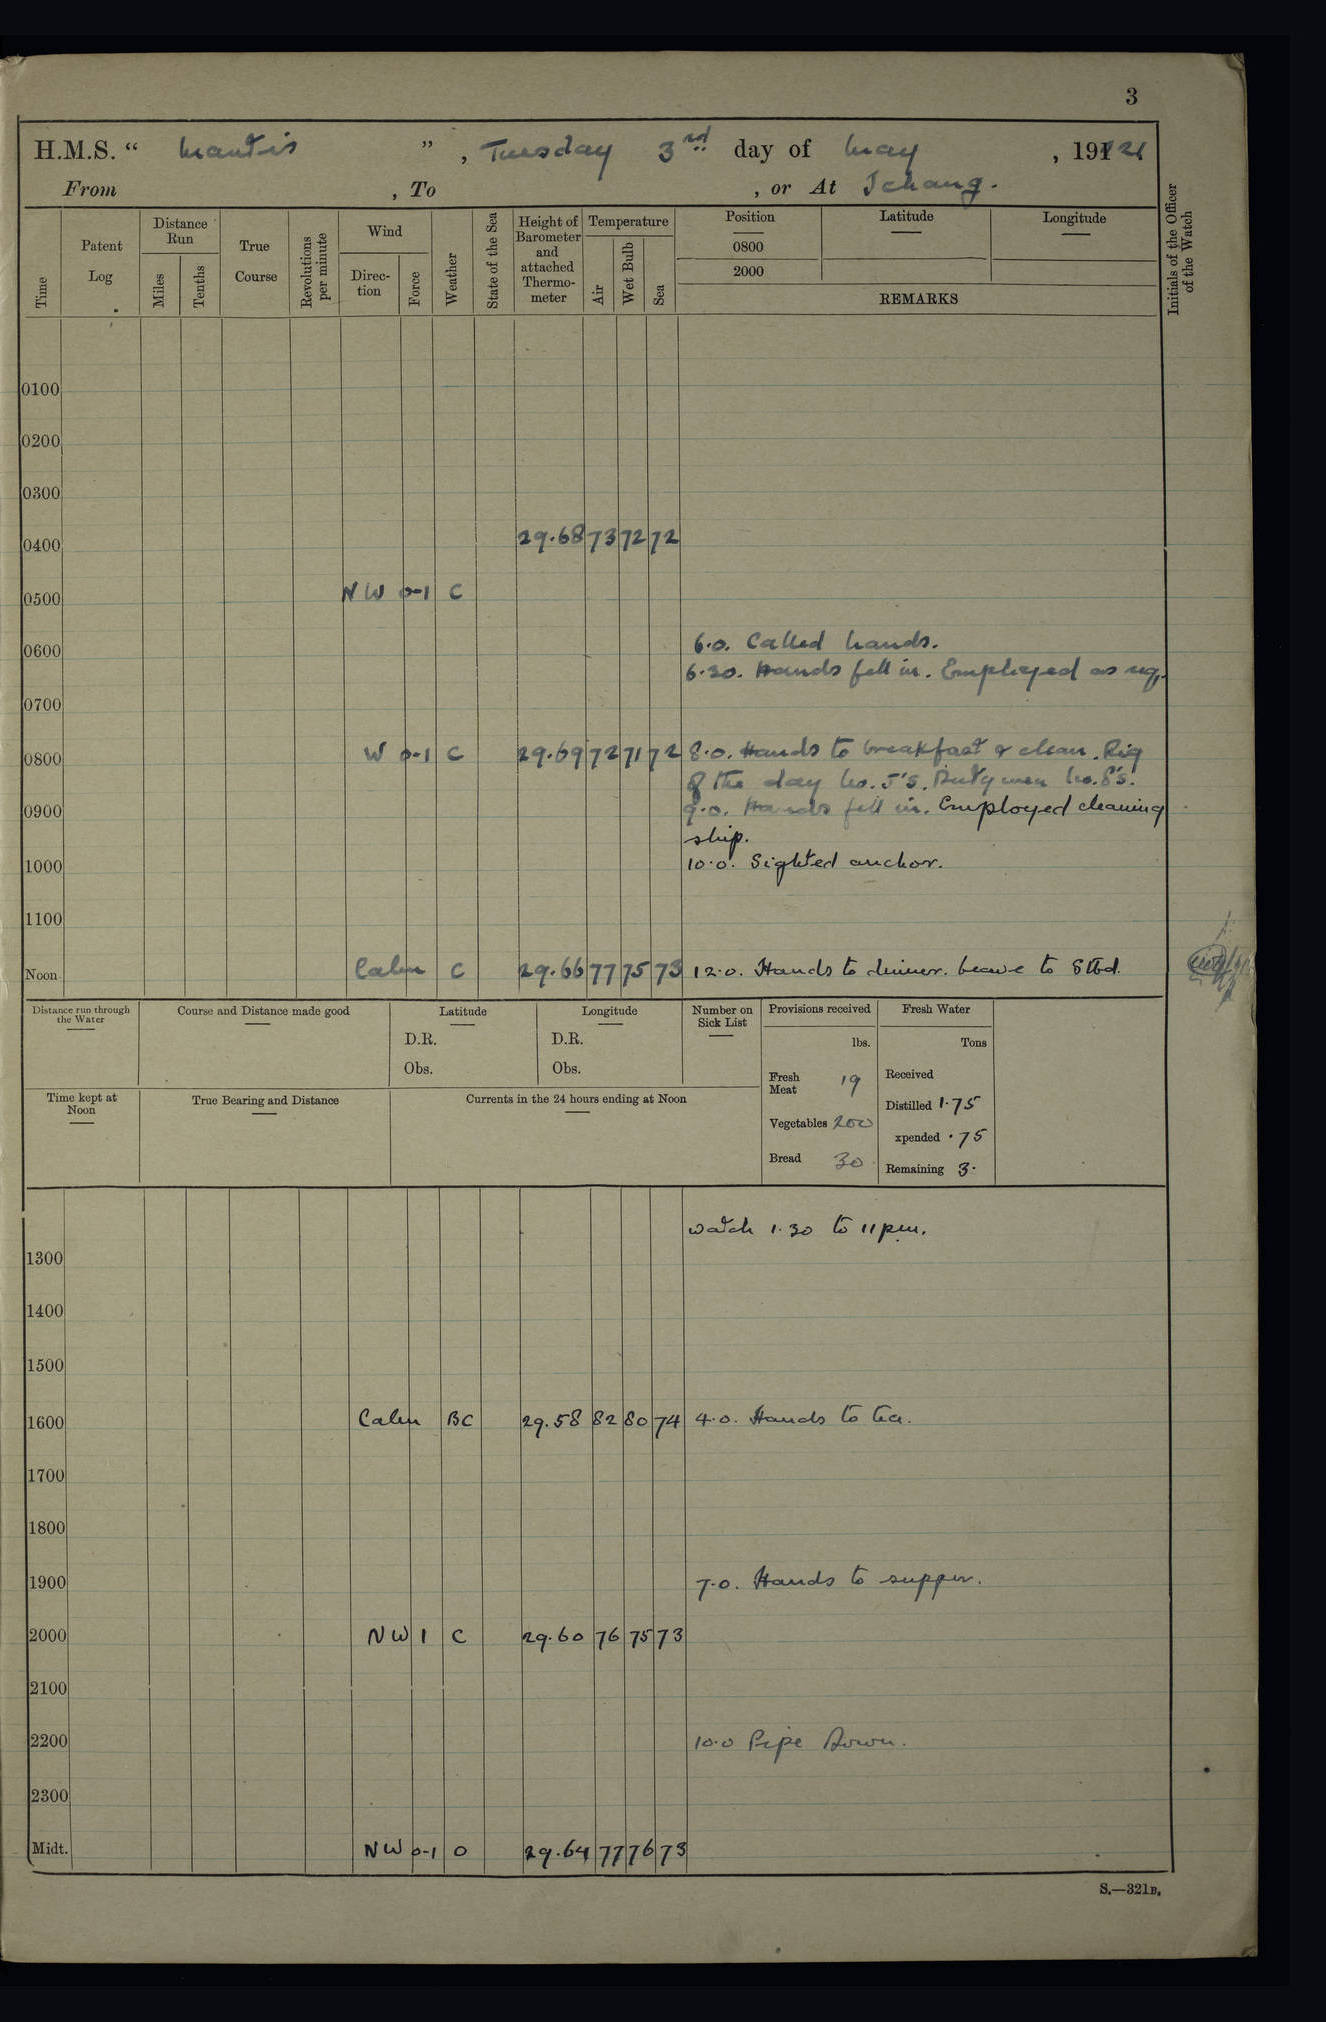 3
H.M.S. “ Mantis ” , Tuesday 3rd day of May , 1921
From , To , or At Ichang.
Time
Patent Log
Distance Run
Miles
Tenths
True Course
Revolutions per minute
Wind
Direc-tion
Force
Weather
State of the Sea
Height of Barometer and attached Thermo-meter
Temperature
Air
Wet Bulb
Sea
Position
0800
2000
Latitude
Longitude
REMARKS
Initials of the Officer of the Watch
0100
0200
0300
0400 29.68 73 72 72
0500 NW 0-1 C
0600 6.0. Called hands.
6.30. Hands fell in. Employed as req.
0700
0800 W 0-1 C 29.69 72 71 72 8.0. Hands to breakfast & clean. Rig
of the day No. 5's. Dutymen No. 8's.
0900 9.0. Hands fell in. Employed cleaning
ship.
1000 10.0. Sighted anchor.
1100
Noon Calm C 29.66 77 75 73 12.0. Hands to dinner. Leave to Stbd.
Distance run through the Water
Course and Distance made good
Latitude
D.R.
Obs.
Longitude
D.R.
Obs.
Number on Sick List
Provisions received
lbs.
Fresh Meat 19
Vegetables 200
Bread 30
Fresh Water
Tons
Received
Distilled 1.75
xpended .75
Remaining 3.
Time kept at Noon
True Bearing and Distance
Currents in the 24 hours ending at Noon
watch 1.30 to 11 pm.
1300
1400
1500
1600 Calm BC 29.58 82 80 74 4.0. Hands to tea.
1700
1800
1900 7.0. Hands to supper.
2000 NW 1 C 29.60 76 75 73
2100
2200 10.0 Pipe Down.
2300
Midt. NW 0-1 O 29.64 77 76 73
S.—321B.